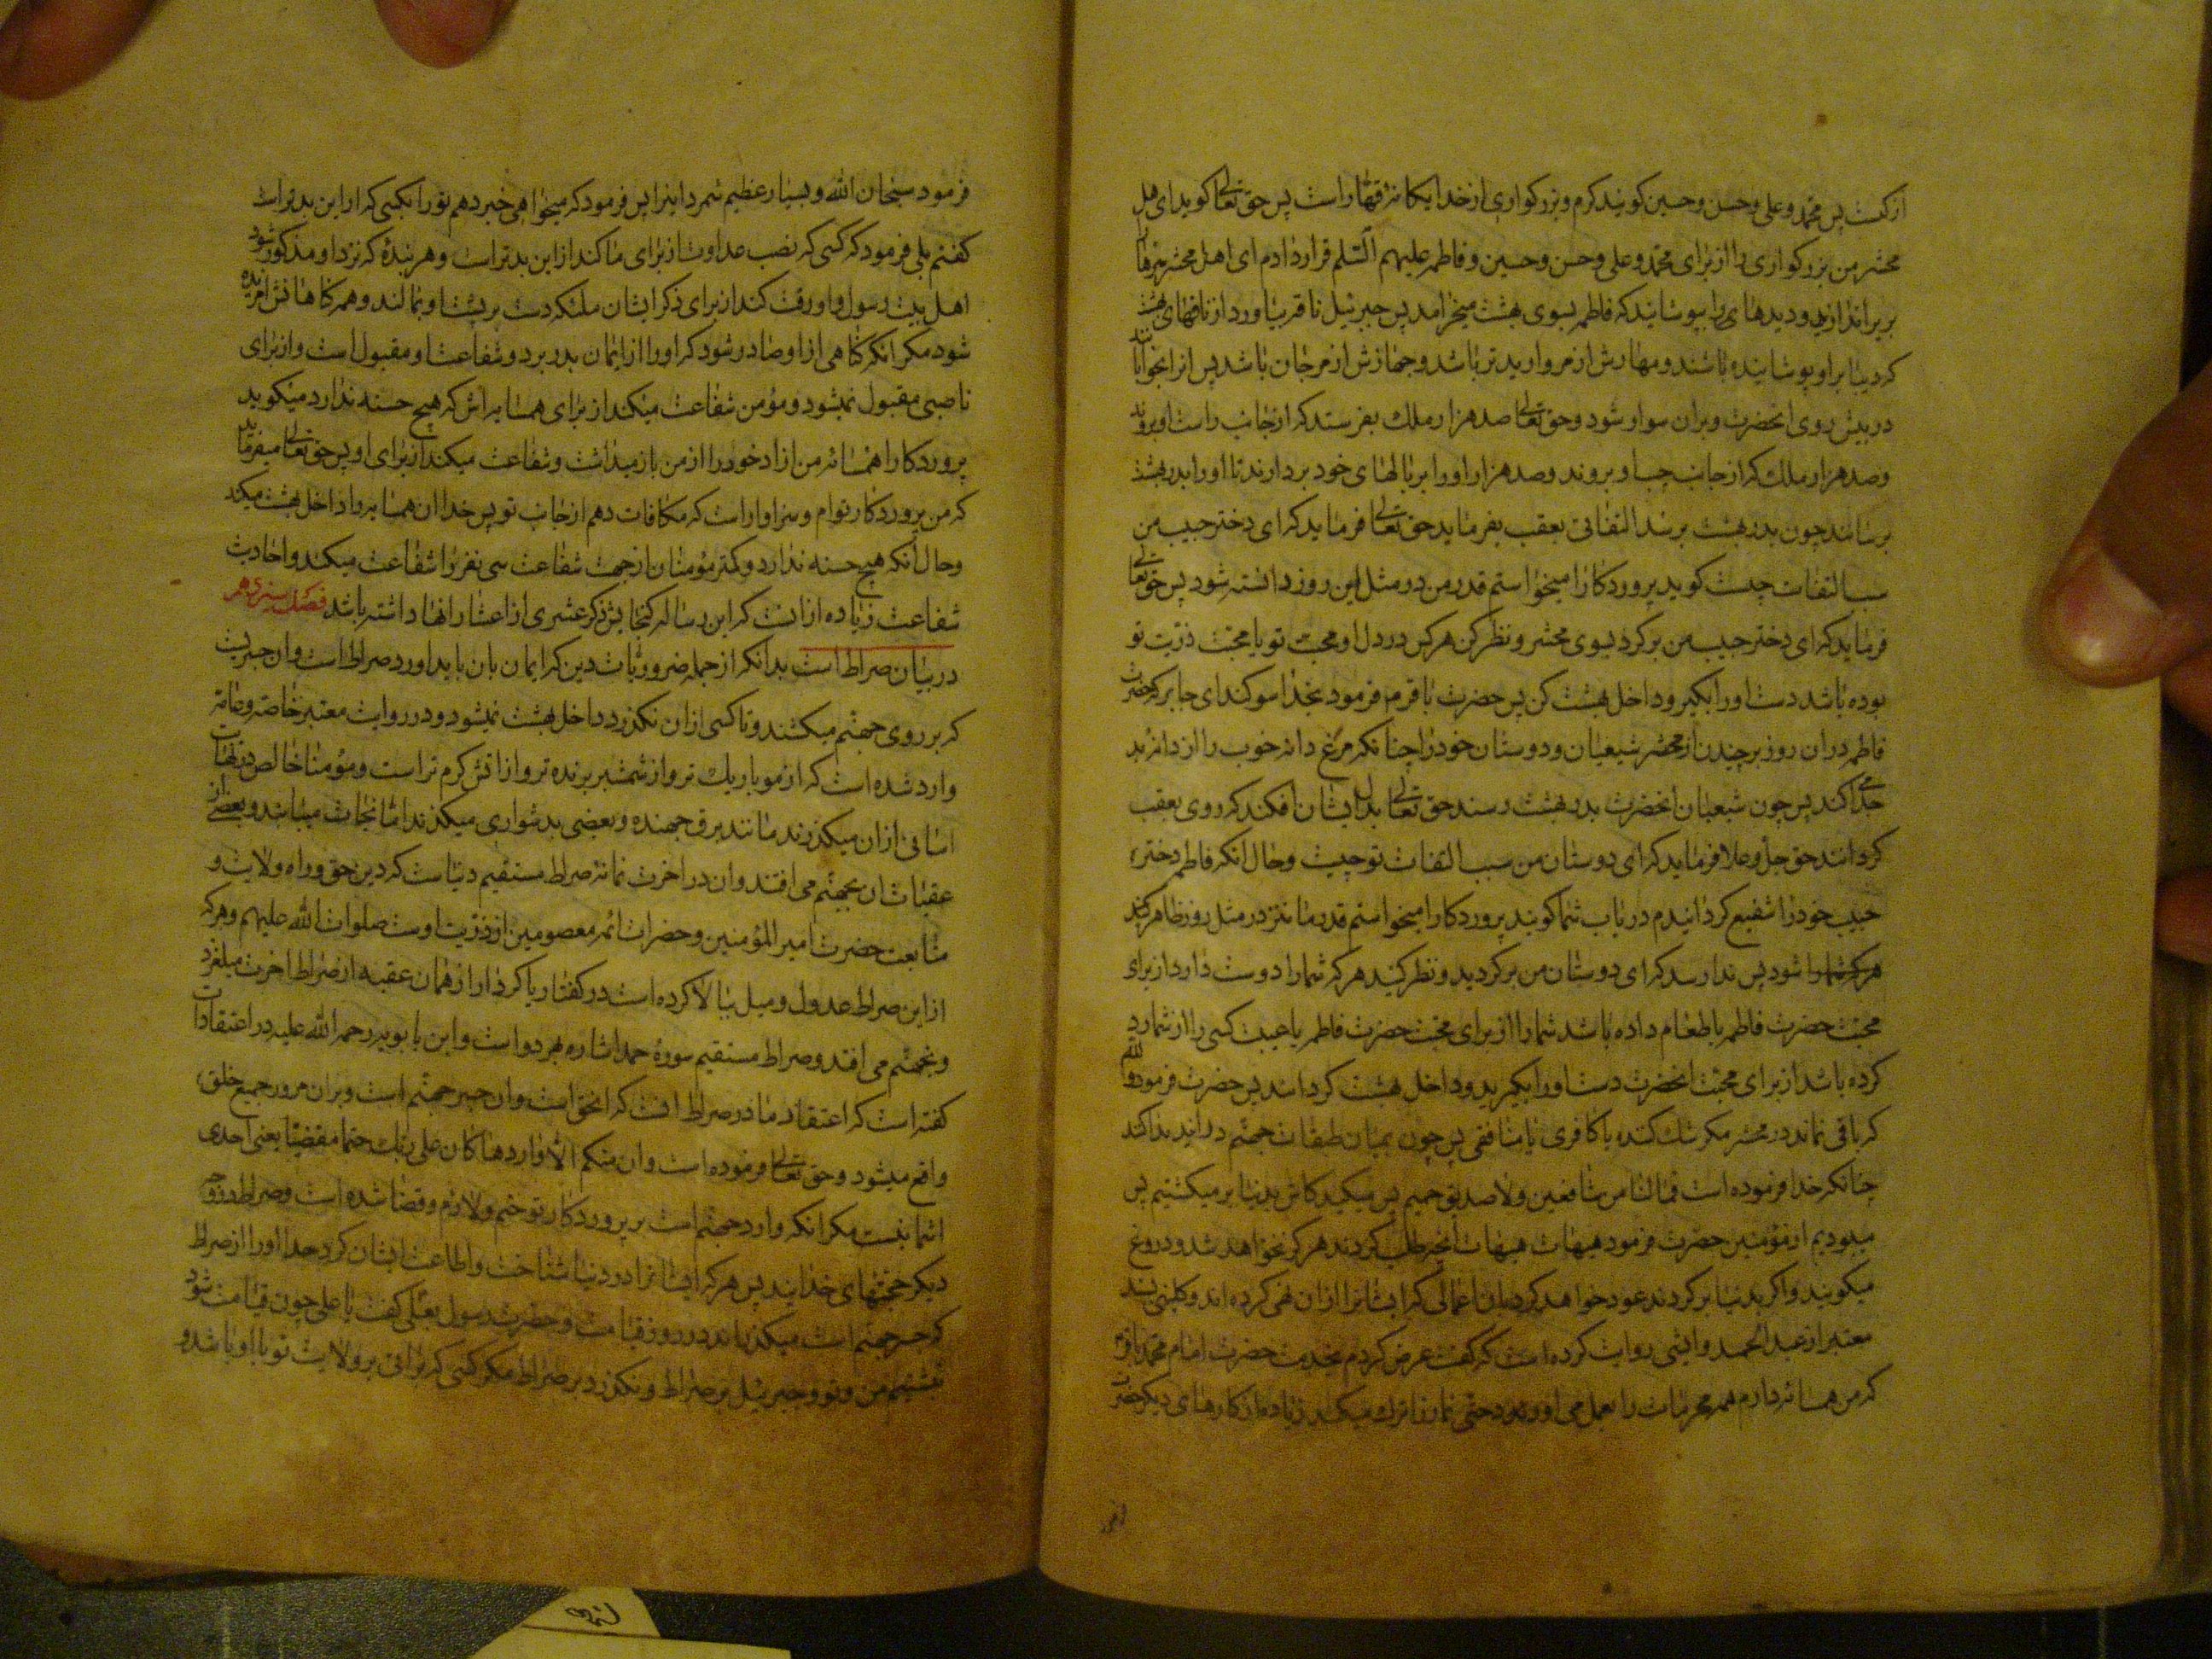 از کیست پس محمد و علی و حسن و حسین گویند کرم و بزرگواری از خدای یگانهٔ قهار است پس حق تعالی گوید ای اهل
محشر من بزرگواری را از برای محمد و علی و حسن و حسین و فاطمه علیهم السلم قرار دادم ای اهل محشر سرها
بزیر اندازید و دیدهای را بپوشانید که فاطمه بسوی بهشت میخرامد پس جبرئیل ناقه بیاورد از ناقهای بهشت
که دیبا بر او پوشانیده باشند و مهارش از مروارید تر باشد و جهازش از مرجان باشد پس انرا بخوابانند
در پیش روی انحضرت و بران سوار شود و حق تعالی صد هزار ملک بفرستد که از جانب راست او بروند
و صد هزار ملک که از جانب چپ او بروند و صد هزار او را بر بالهای خود بردارند تا او را بدر بهشت
برسانند چون بدر بهشت برسد التفاتی بعقب بفرماید حق تعالی فرماید که ای دختر حبیب من
سبب التفات چیست گوید پروردگارا میخواستم قدر من در مثل این روز دانسته شود پس حق تعالی
فرماید که ای دختر حبیب من برگرد بسوی محشر و نظر کن هر کس در دل او محبت تو یا محبت ذریت تو
بوده باشد دست او را بگیر و داخل بهشت کن پس حضرت باقر فرمود بخدا سوگند ای جابر که حضرت
فاطمه دران روز برچیند از محشر شیعیان و دوستان خود را چنانکه مرغ دانه خوب را از دانه بد
جدا می کند پس چون شیعیان انحضرت بدر بهشت رسند حق تعالی بدل ایشان افکند که روی بعقب
کردانند حق جل و علا فرماید که ای دوستان من سبب التفات تو چیست و حال انکه فاطمه دختر
حبیب خود را شفیع کردانیدم در باب شما گویند پروردگارا میخواستم قدر ما نیز در مثل روز ظاهر
شود پس ندا رسد که ای دوستان من برگردید و نظر کنید هر که شما را دوست دارد از برای
محبت حضرت فاطمه یا طعام داده باشد شما را از برای محبت حضرت فاطمه یا غیبت کسی را از شما رد
کرده باشد از برای محبت انحضرت دست او را بگیرید و داخل بهشت کردانید پس حضرت فرمود والله
که باقی نماند در محشر مگر شک کننده یا کافری یا منافقی پس چون بمیان طبقات جهنم درایند ندا کنند
چنانکه خدا فرموده است فما لنا من شافعین ولا صدیق حمیم پس میگویند کاش بدنیا بر میگشتیم پس
میبودیم از مؤمنین حضرت فرمود هیهات هیهات انچه طلب کردند هرگز نخواهد شد و دروغ
میگویند و اگر بدنیا برگردند عود خواهند کرد بان اعمالی که ایشانرا از ان نهی کرده اند و کلینی بسند
معتبر از عبد الحمید وابشی روایت کرده است که گفت عرض کردم بخدمت حضرت امام محمد باقر
که من همسایهٔ دارم همه محرمات را بعمل می اورد و حتی نماز را ترک میکند زیاده از کارهای دیگر حضرت
فرمود
فرمود سبحان الله و بسیار عظیم شمرد اینرا پس فرمود که میخواهی خبر دهم تو را بکسی که از این بدتر است
گفتم بلی فرمود که کسی که نصب عداوت از برای ما کند از این بدتر است و هر بندهٔ که نزد او مذکور شود
اهل بیت رسول و او رقت کند از برای ذکر ایشان ملئکه دست بر پشت او بمالند و همه گناهانش امرزیده
شود مگر انکه گناهی از او صادر شود که او را از ایمان بدر برد و شفاعت او مقبول است و از برای
ناصبی مقبول نمیشود و مؤمن شفاعت میکند از برای همسایه اش که هیچ حسنه ندارد میگوید
پروردگارا همسایه من ازار خود را از من باز میداشت و شفاعت میکند از برای او پس حق تعالی میفرماید
که من پروردگار توام و سزاوار است که مکافات دهم از جانب تو پس خدا ان همسایه را داخل بهشت میکند
و حال انکه هیچ حسنه ندارد و کمتر مؤمنان از جهت شفاعت سی نفر را شفاعت میکند و احادیث
شفاعت زیاده از انست که این رساله گنجایش ذکر عشری از اعشار انها داشته باشد فصل سیزدهم
در بیان صراط است بدانکه از جمله ضروریات دین که ایمان بان باید اورد صراط است و ان جسریست
که بر روی جهنم میکشند و تا کسی از ان نگذرد داخل بهشت نمیشود و در روایت معتبر خاصه و عامه
وارد شده است که از مو باریک تر و از شمشیر برنده تر و از اتش گرم تر است و مؤمنان خالص در نهایت
اسانی از ان میگذرند مانند برق جهنده و بعضی بدشواری میگذرند اما نجات مییابند و بعضی از
عقبات ان بجهنم می افتند و ان در اخرت نمانهٔ صراط مستقیم دنیاست که دین حق و راه ولایت و
متابعت حضرت امیر المؤمنین و حضرات ائمه معصومین از ذریت اوست صلوات الله علیهم و هر که
از این صراط عدول و میل ببالا کرده است در گفتار یا کردار از همان عقبه از صراط اخرت میلغزد
و بجهنم می افتد و صراط مستقیم سورهٔ حمد اشاره بهر دو است و ابن بابویه رحمه الله علیه در اعتقادات
گفته است که اعتقاد ما در صراط انست که انحق است و ان جسر جهنم است و بران مرور جمیع خلق
واقع میشود و حق تعالی فرموده است و ان منکم الا واردها کان علی ربک حتما مقضیا یعنی احدی
از شما نیست مگر انکه وارد جهنم است بر پروردگار تو حتم و لازم و قضا شده است و صراط در وجه
دیگر حجتهای خدایند پس هر که ایشانرا در دنیا شناخت و اطاعت ایشان کرد خدا او را از صراط
که جسر جهنم است میگذراند در روز قیامت و حضرت رسول بعلی گفت یا علی چون قیامت شود
بنشینم من و تو و جبرئیل بر صراط و نگذرد بر صراط مگر کسی که براتی بر ولایت تو با او باشد و